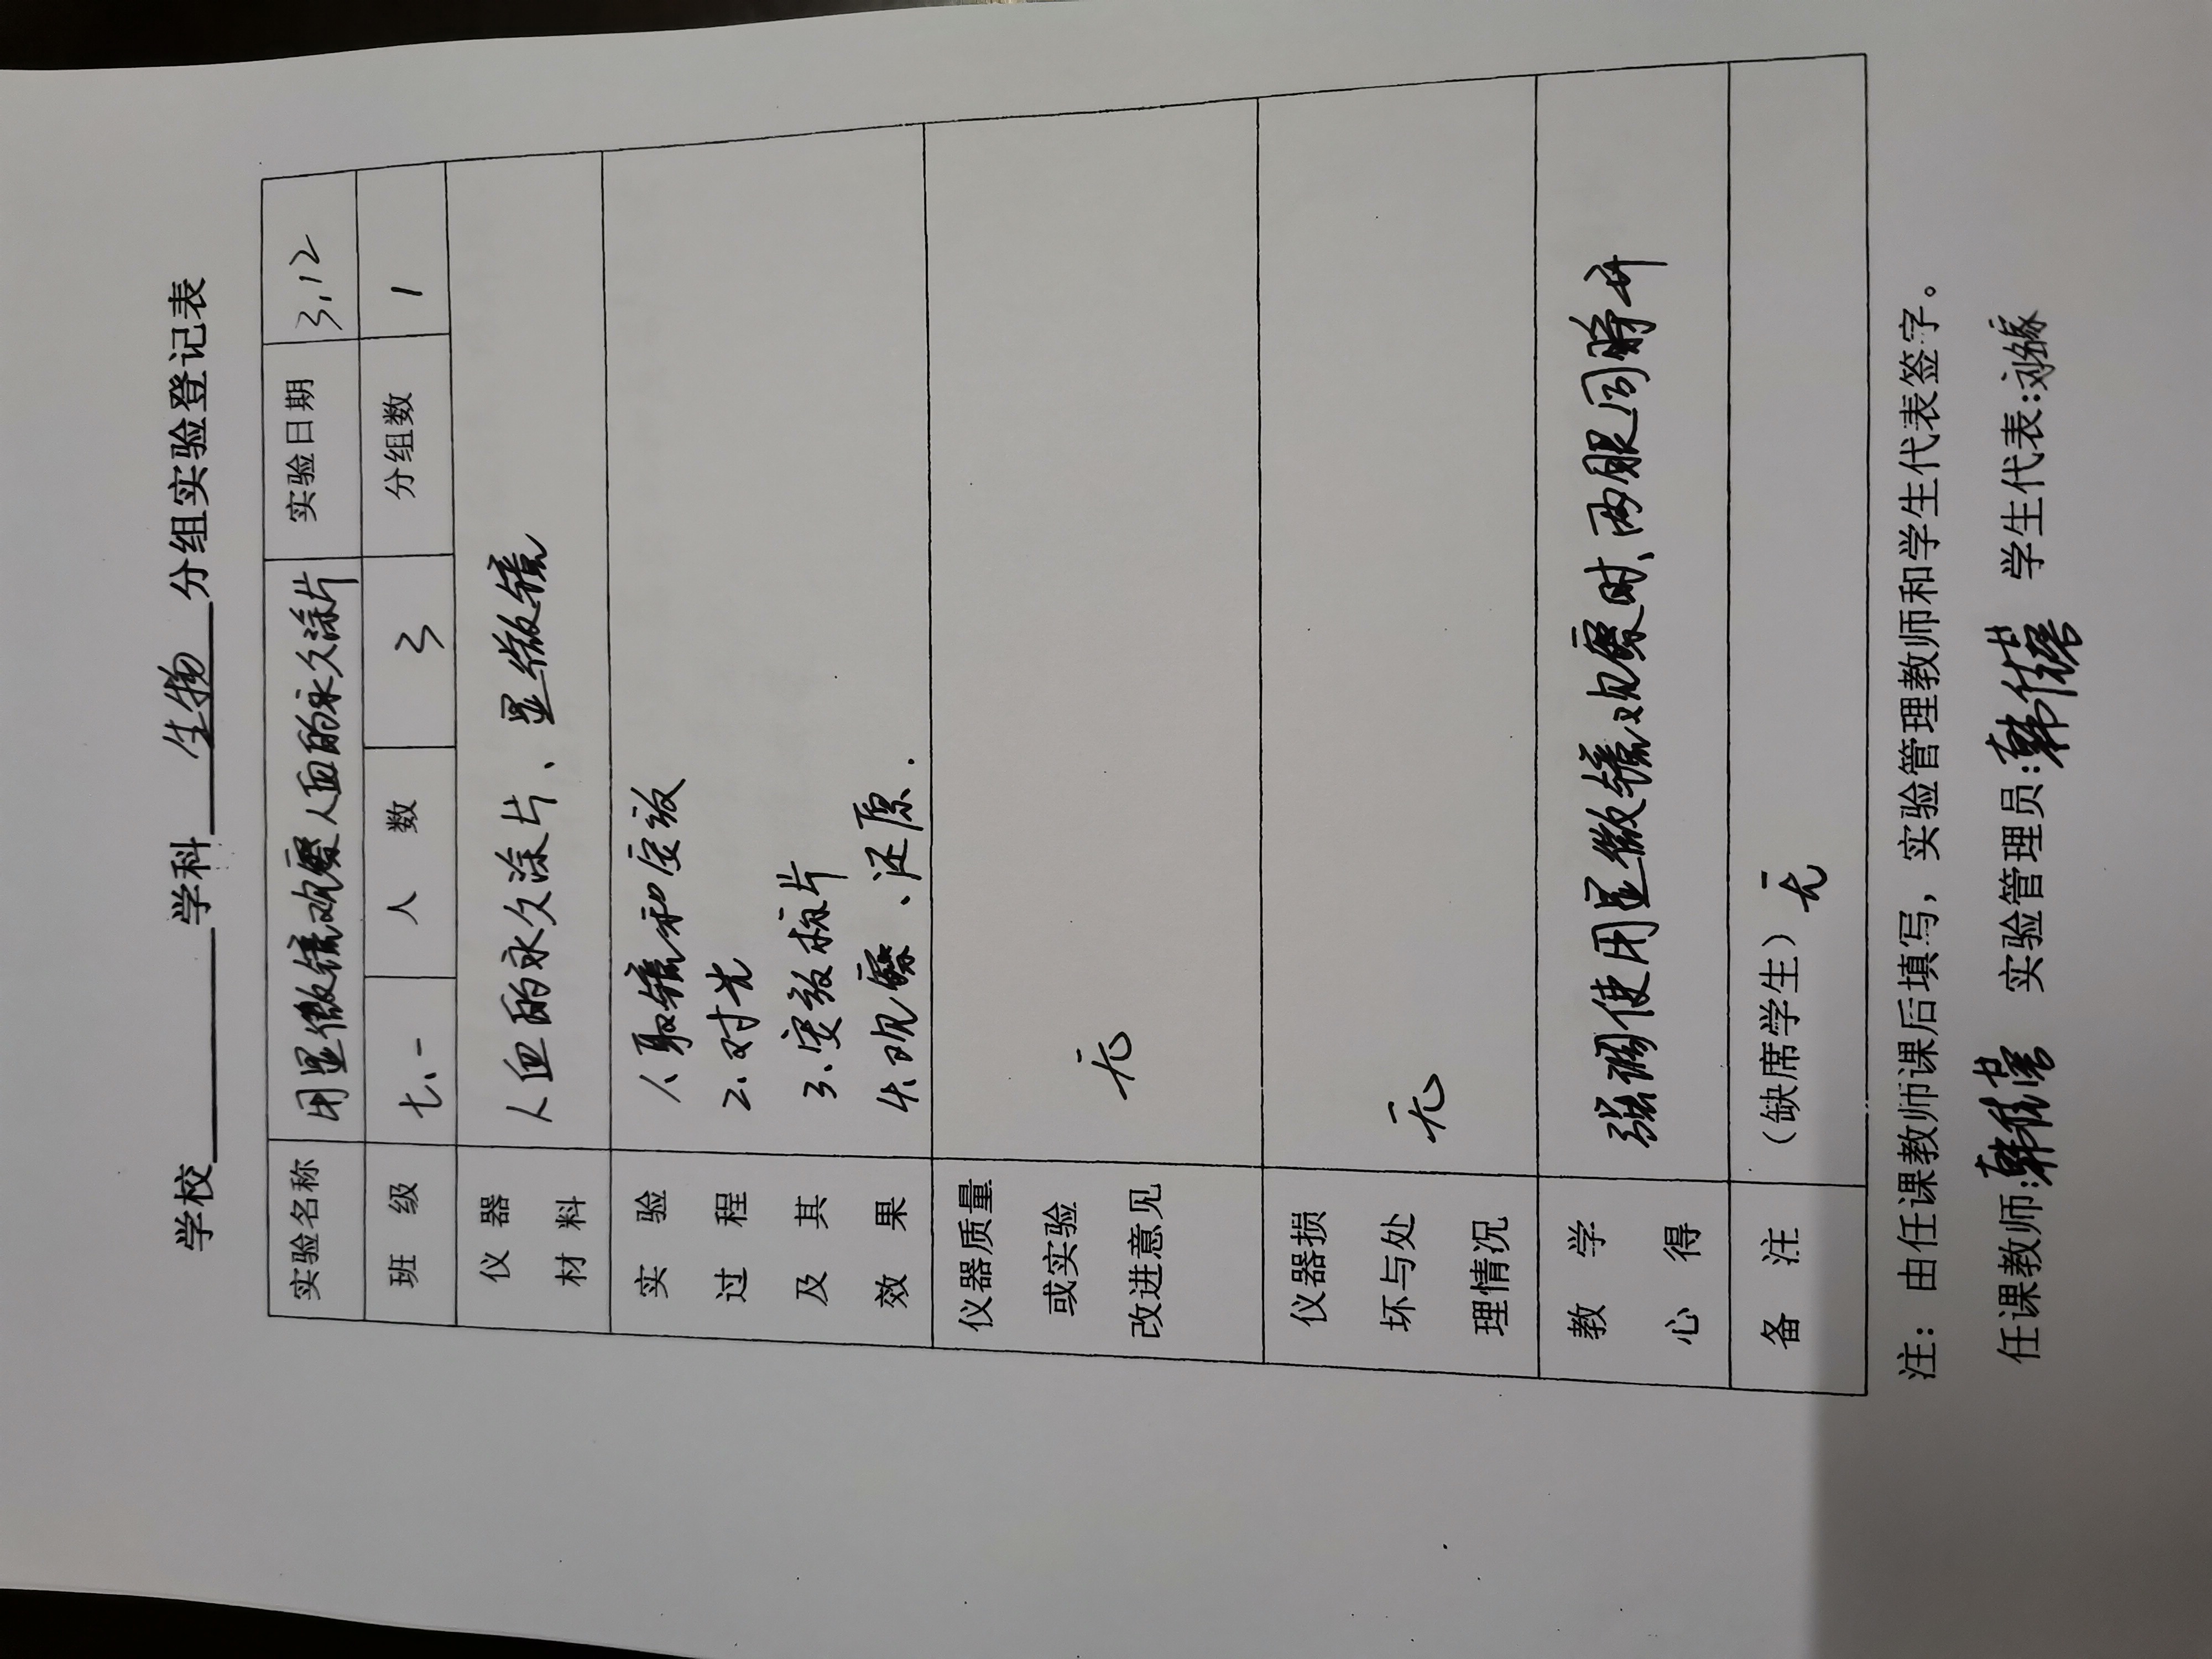 学校 学科 生物 分组实验登记表
实验名称 用显微镜观察人血的永久涂片 实验日期 3.12
班级 七.一 人数 3 分组数 1
仪器材料 人血的永久涂片、显微镜
实验过程及其效果 1、取镜和安放
2.对光
3.安放标片
4.观察、还原.
仪器质量或实验改进意见 无
仪器损坏与处理情况 无
教学心得 强调使用显微镜观察时、两眼同睁开
备注 (缺席学生) 无
注：由任课教师课后填写，实验管理教师和学生代表签字。
任课教师: 实验管理员: 学生代表: